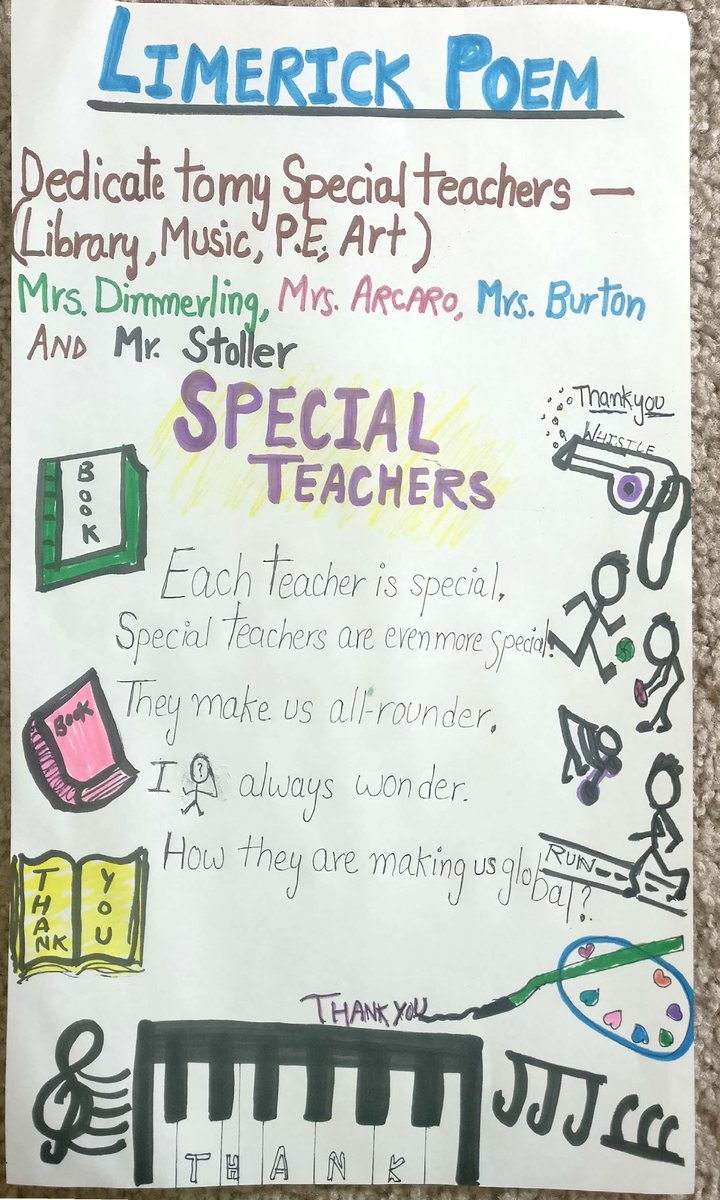 LIMERICK POEM
Dedicate to my Special teachers —
(Library, Music, P.E, Art)
Mrs. Dimmerling, Mrs. ARCARO, Mrs. Burton
AND Mr. Stoller
SPECIAL
TEACHERS
Thankyou
WHISTLE
BOOK
Each teacher is special.
Special teachers are even more special!
They make us all-rounder.
BOOK
I ? always wonder.
How they are making us global?
RUN
THANK YOU
THANK YOU
THANK